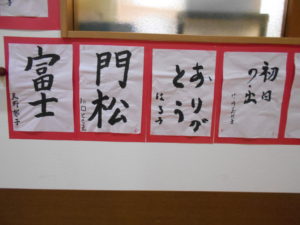 富士
門松
ありが
とう
はるう
初日
の出